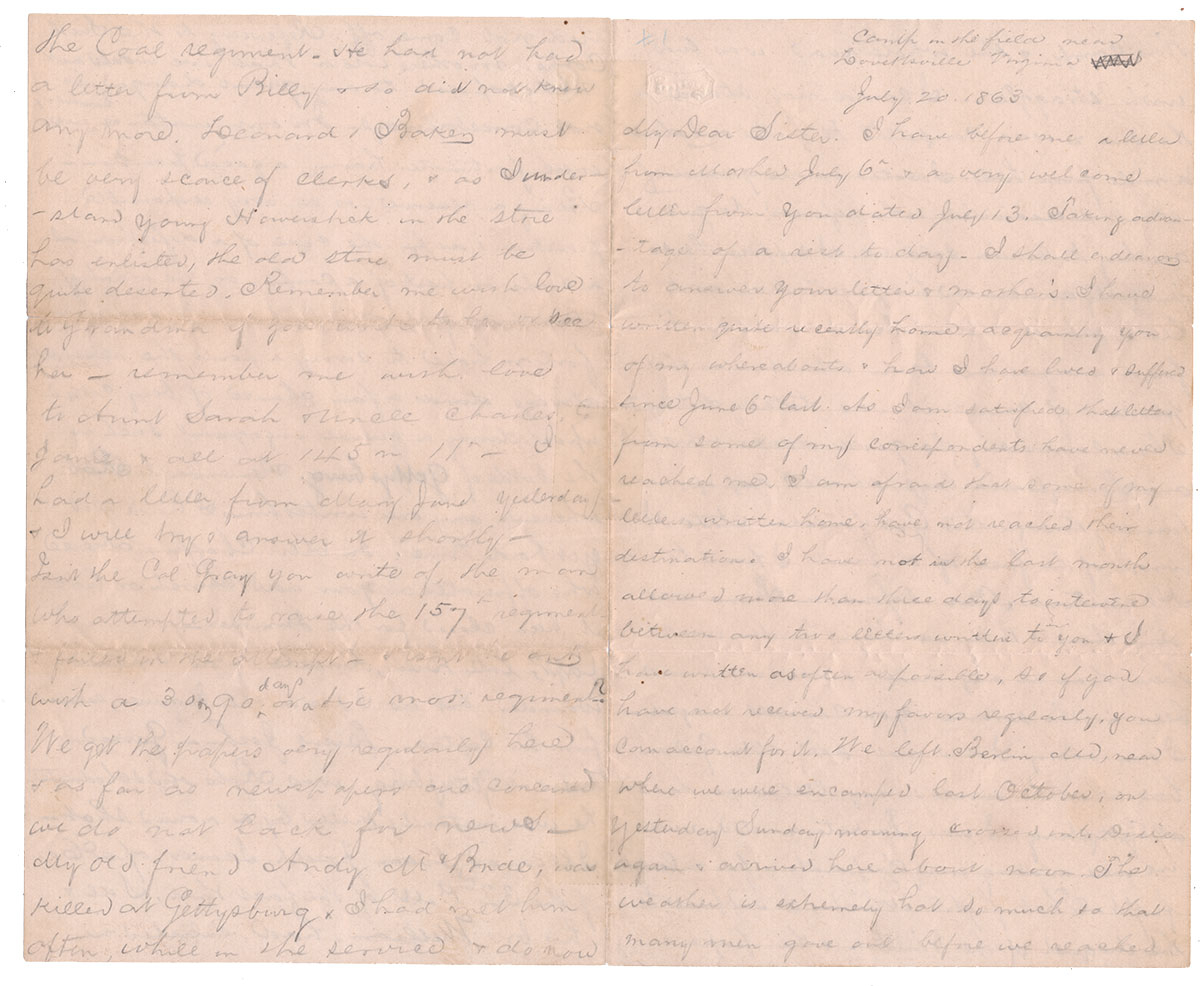 Camp in the field near
Lovettsville Virginia
July 20. 1863
My Dear Sister. I have before me a letter
from Mother July 6th & a very welcome
letter from you dated July 13. Taking advan-
-tage of a rest to day - I shall endeavor
to answer your letter & mother's. I have
written quite recently home, acquainting you
of my whereabouts & how I have lived & suffered
since June 6th last. As I am satisfied that letters
from some of my correspondents have never
reached me, I am afraid that some of my
letters written home, have not reached their
destination. I have not in the last month
allowed more than three days to intervene
between any two letters written to you & I
have written as often as possible, so if you
have not received my favors regularly, you
can account for it. We left Berlin Md, near
where we were encamped last October, on
yesterday Sunday morning crossed into Dixie
again & arrived here about noon. The
weather is extremely hot so much so that
many men gave out before we reached
the Coal regiment - He had not had
a letter from Billy & so did not know
any more. Leonard & Baker must
be very scarce of clerks, & as I under-
-stand young Haverstick in the store
has enlisted, the old store must be
quite deserted. Remember me with love
to Grandma if you see
her - remember me with love
to Aunt Sarah & Uncle Charles,
Janie & all at 145 n 11th - I
had a letter from Mary Jane yesterday
& I will try & answer it shortly -
Isn't the Col Gray you write of, the man
who attempted to raise the 157th regiment
& failed in the attempt - & went out
with a 30 or 90 days or a six mos. regiment?
We get the papers very regularly here
& as far as newspapers are concerned
we do not lack for news -
My old friend Andy McBride, was
killed at Gettysburg, I had met him
often, while in the service & do now